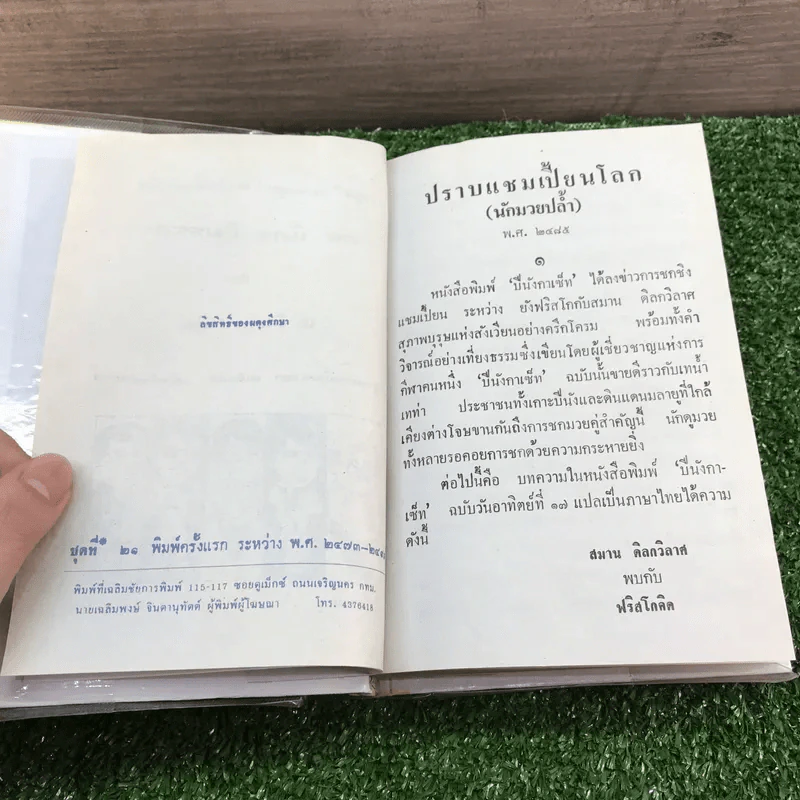 ลิขสิทธิ์ของผดุงศึกษา
ชุดที่ ๒๑ พิมพ์ครั้งแรก ระหว่าง พ.ศ. ๒๔๗๓-
พิมพ์ที่เฉลิมชัยการพิมพ์ 115-117 ซอยดูเม็กซ์ ถนนเจริญนคร กทม.
นายเฉลิมพงษ์ จินดานุทัตต์ ผู้พิมพ์ผู้โฆษณา โทร. 4376418
ปราบแชมเปี้ยนโลก
(นักมวยปล้ำ)
พ.ศ. ๒๔๘๕
๑
หนังสือพิมพ์ 'ปีนังกาเซ็ท' ได้ลงข่าวการชกชิง
แชมเปี้ยน ระหว่าง ยังฟริสโกกับสมาน ดิลกวิลาศ
สุภาพบุรุษแห่งสังเวียนอย่างครึกโครม พร้อมทั้งคำ
วิจารณ์อย่างเที่ยงธรรมซึ่งเขียนโดยผู้เชี่ยวชาญแห่งการ
กีฬาคนหนึ่ง 'ปีนังกาเซ็ท' ฉบับนั้นขายดีราวกับเทน้ำ
เทท่า ประชาชนทั้งเกาะปีนังและดินแดนมลายูที่ใกล้
เคียงต่างโจษขานกันถึงการชกมวยคู่สำคัญนี้ นักดูมวย
ทั้งหลายรอคอยการชกด้วยความกระหายยิ่ง
ต่อไปนี้คือ บทความในหนังสือพิมพ์ 'ปีนังกา-
เซ็ท' ฉบับวันอาทิตย์ที่ ๑๗ แปลเป็นภาษาไทยได้ความ
ดังนี้
สมาน ดิลกวิลาศ
พบกับ
ฟริสโกคิด